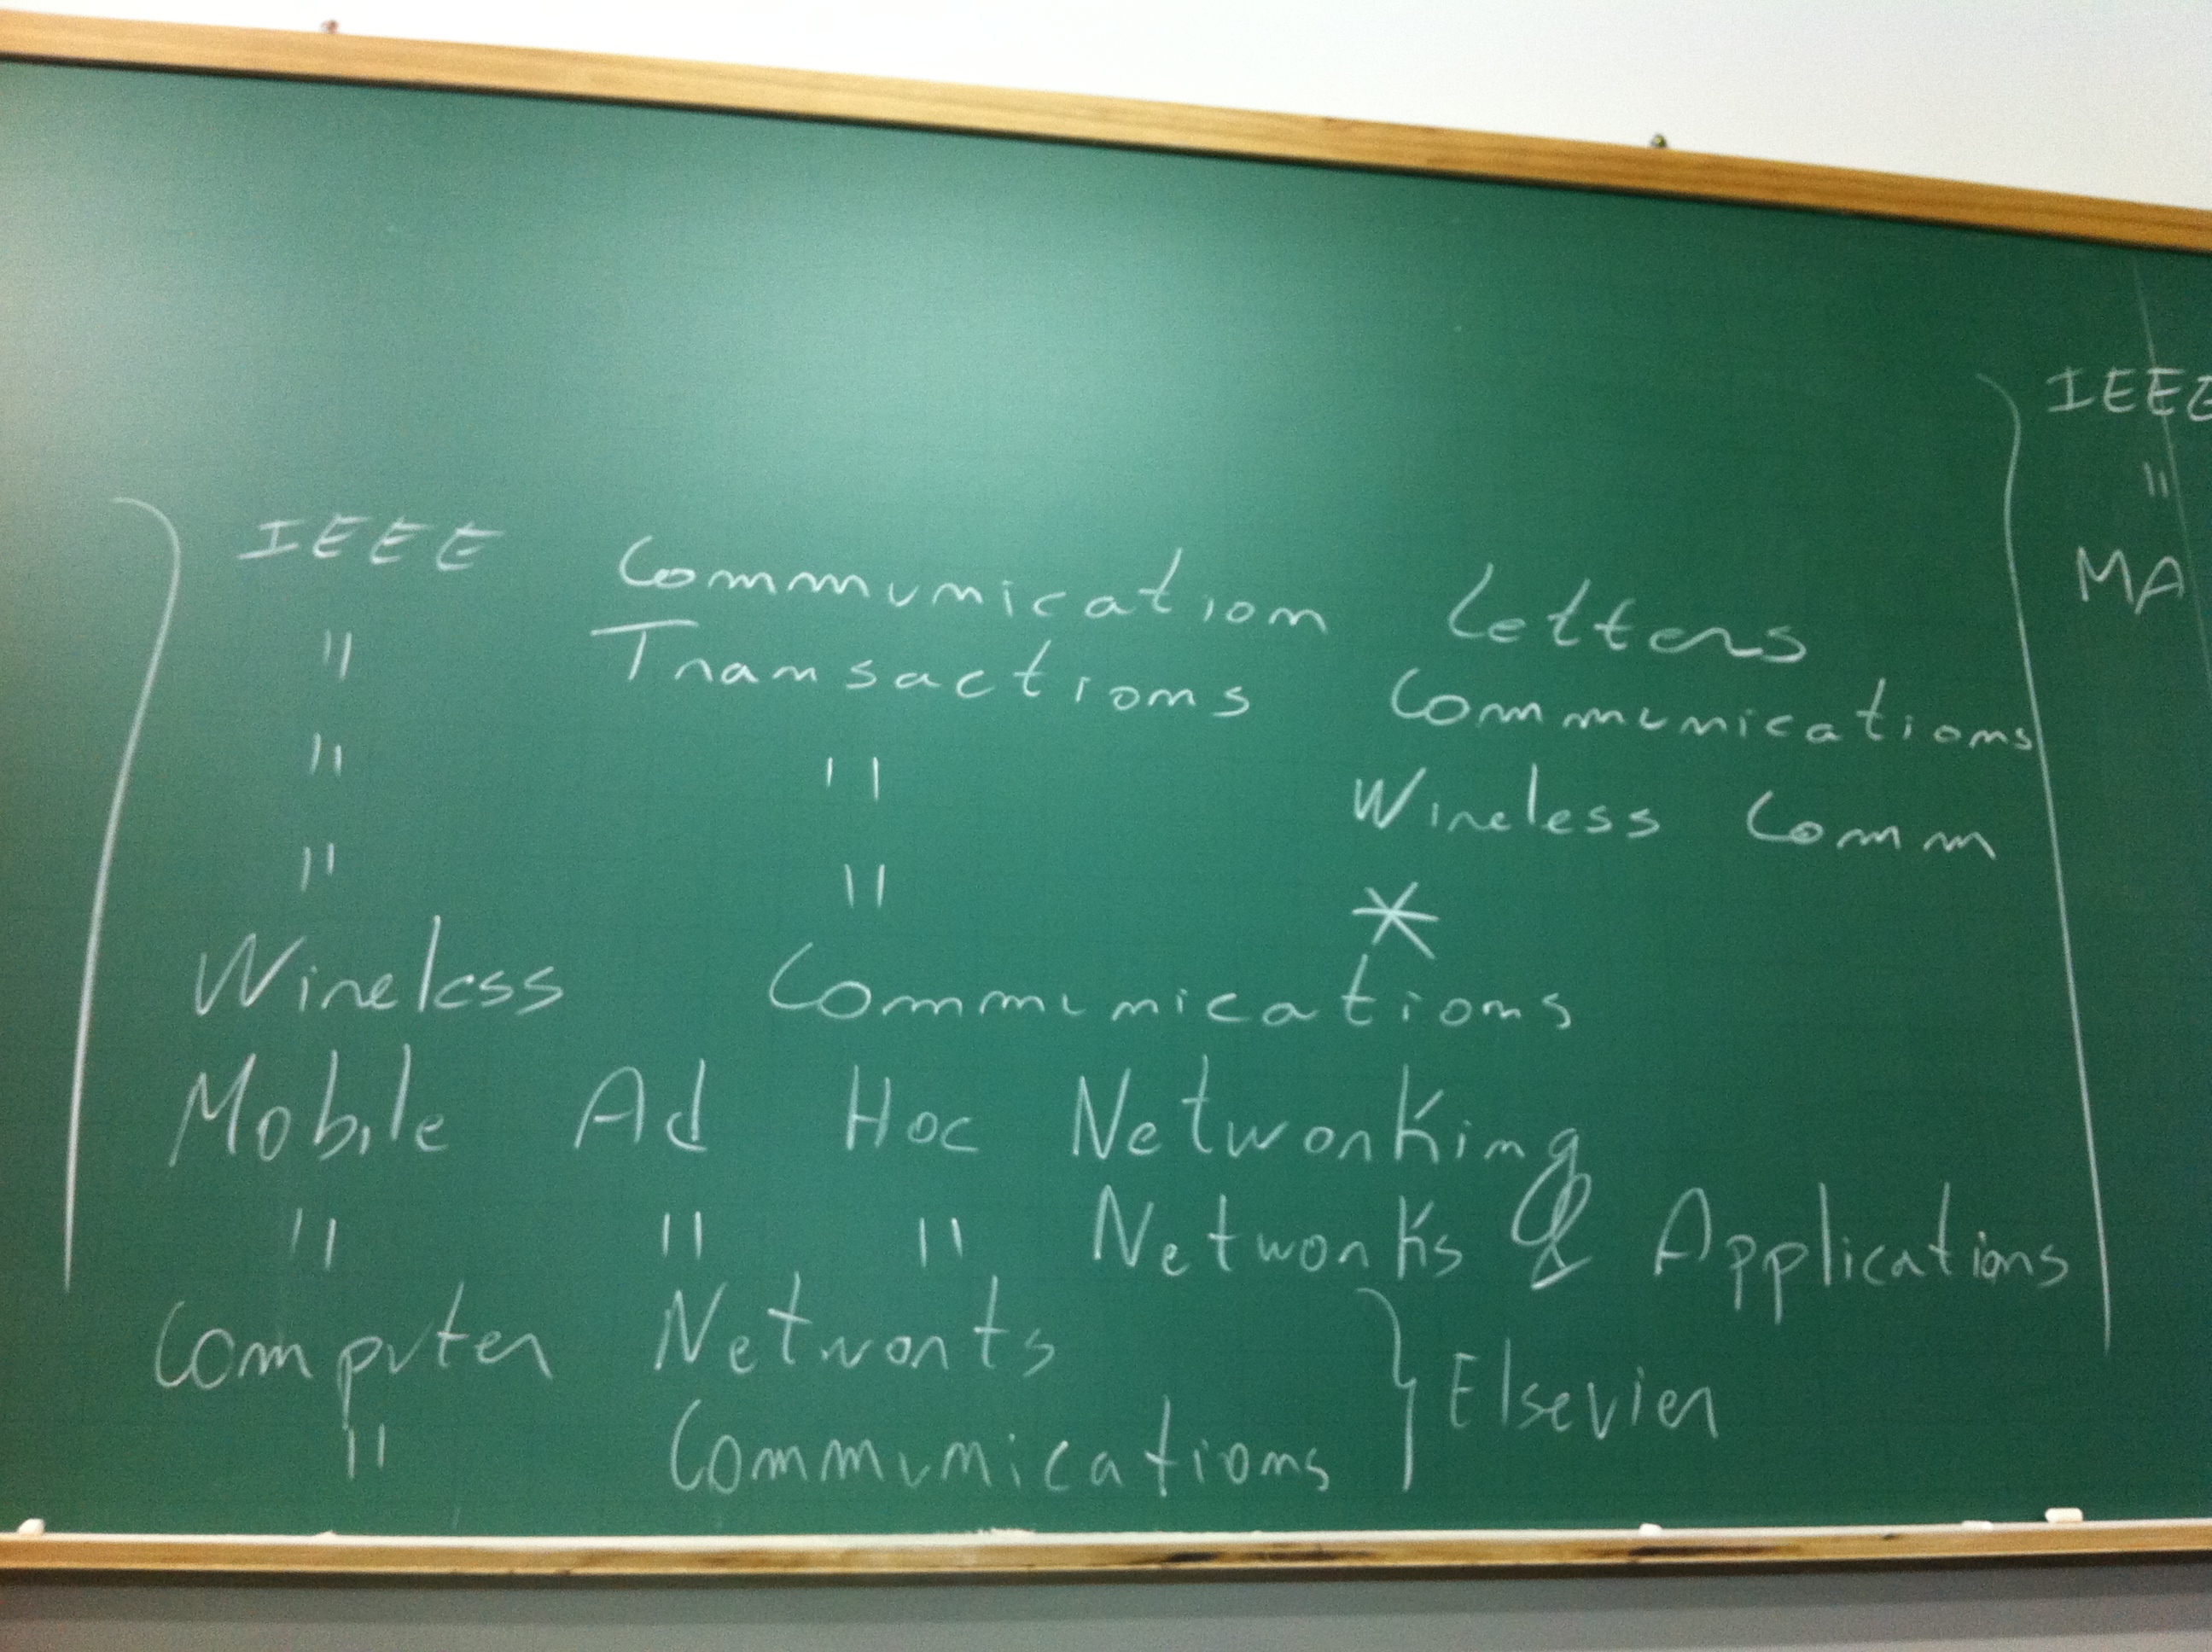 IEEE Communication Letters
" Transactions Communications
" " Wireless Comm
" " *
Wireless Communications
Mobile Ad Hoc Networking
" " " Networks & Applications
Computer Networks
" Communications
} Elsevier
IEEE
"
MA